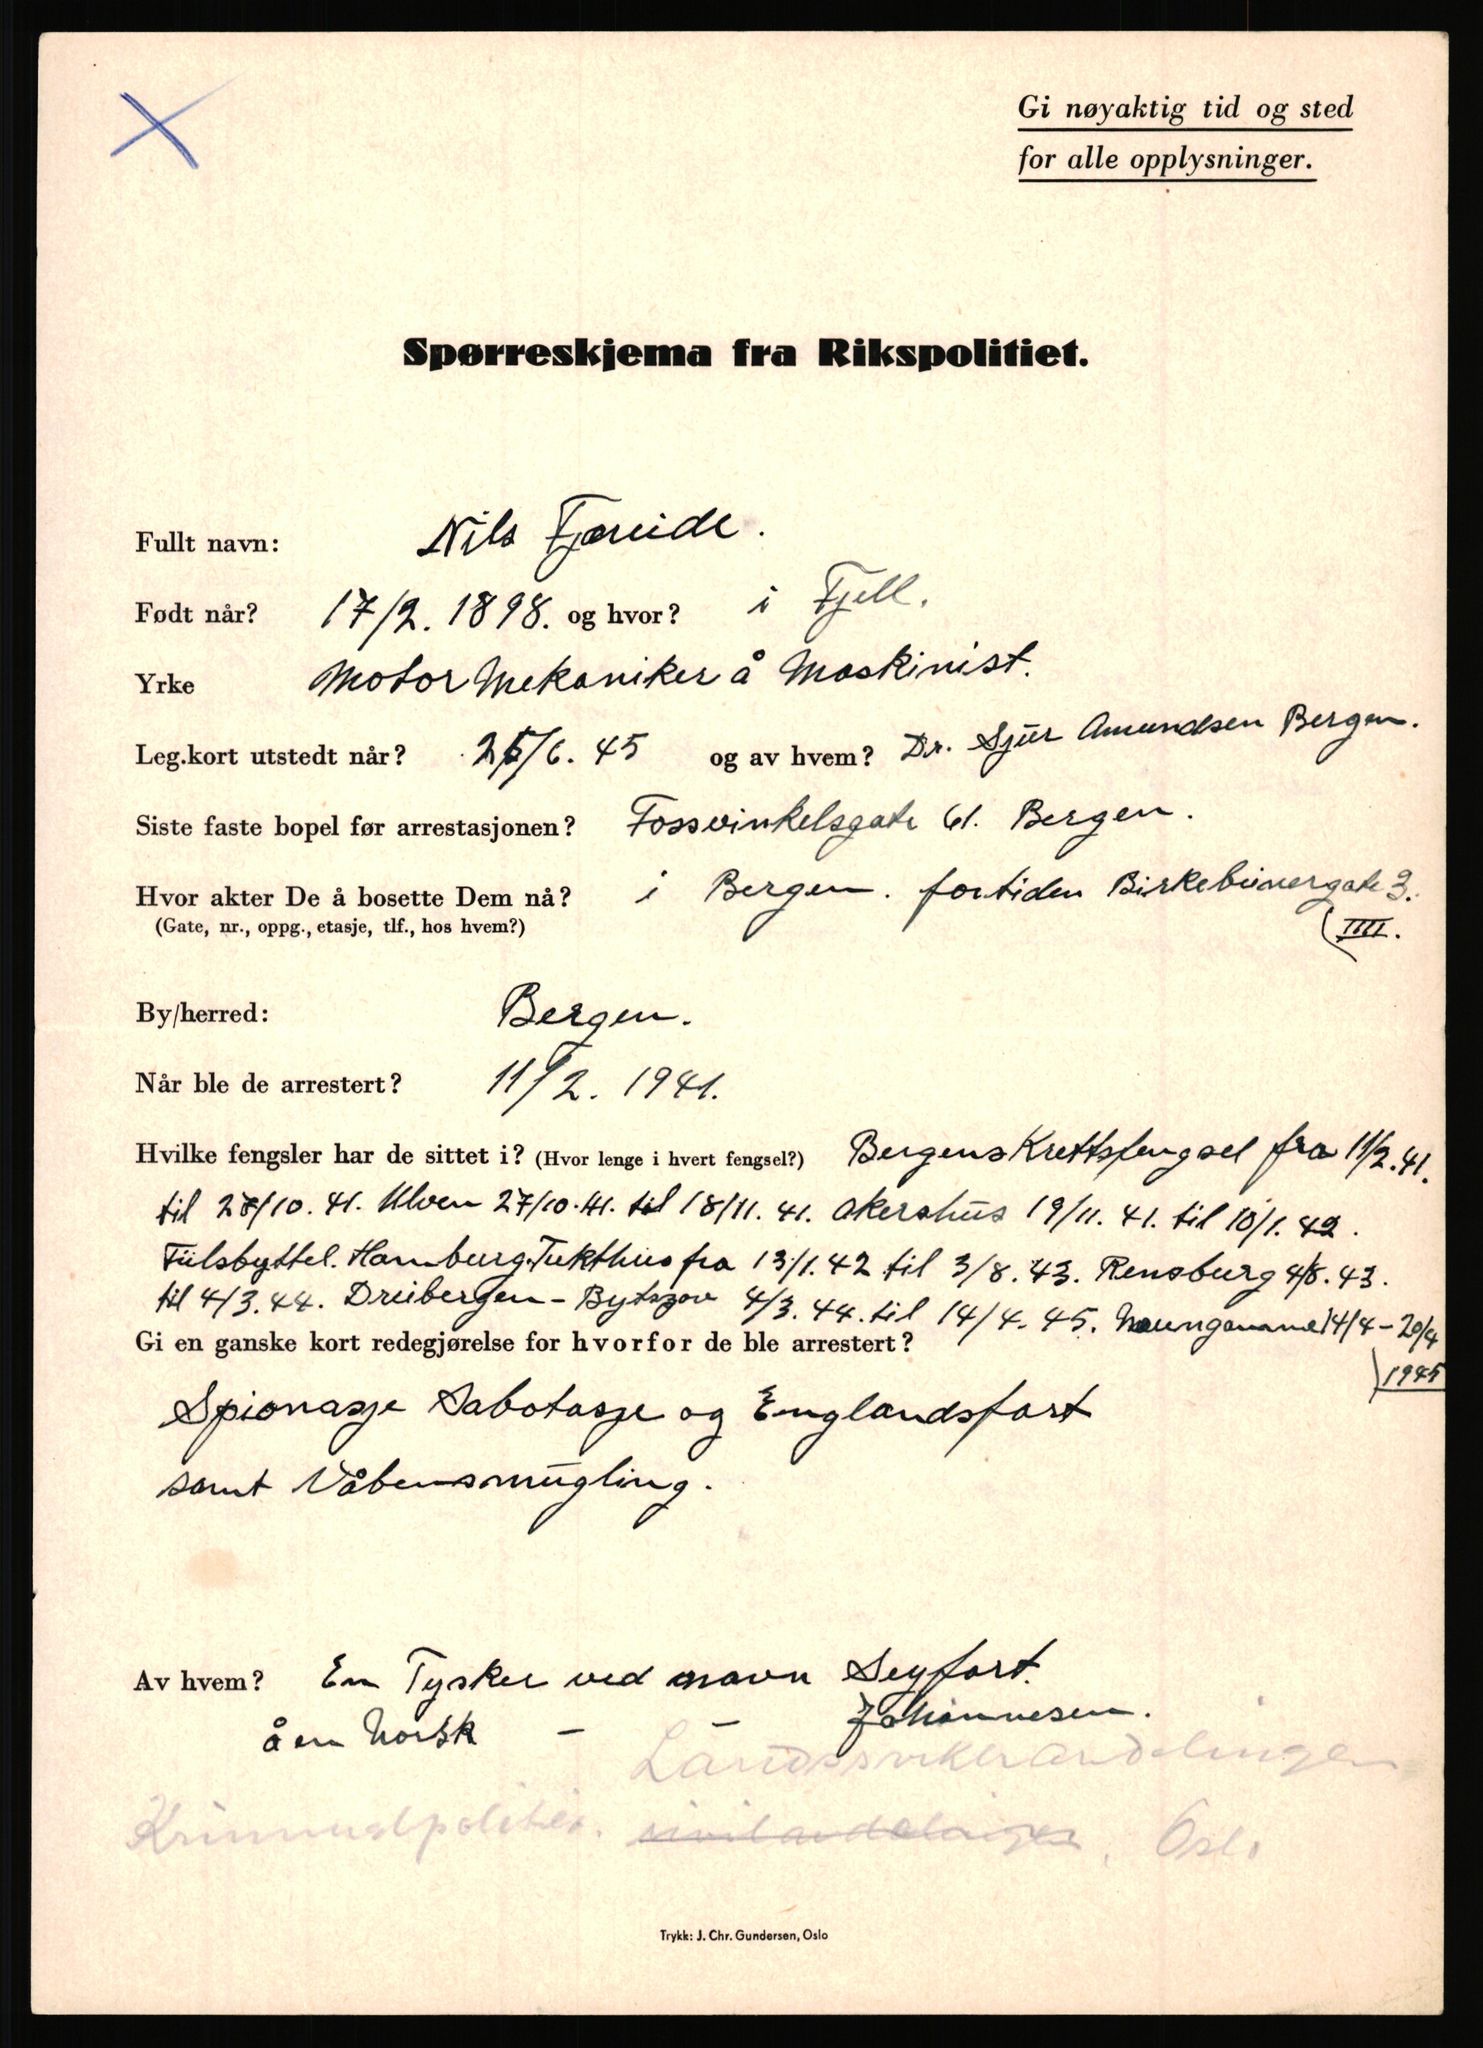 Gi nøyaktig tid og sted
for alle opplysninger.
Spørreskjema fra Rikspolitiet.
Fullt navn: Nils Fjæreide.
Født når? 17/2. 1898. og hvor? i Fjell.
Yrke Motor Mekaniker å Maskinist.
Leg.kort utstedt når? 25/6. 45 og av hvem? Dr. Sjur Amundsen Bergen.
Siste faste bopel før arrestasjonen? Fossvinkelsgate 61. Bergen.
Hvor akter De å bosette Dem nå? i Bergen. fortiden Birkebeinergate 3.
(Gate, nr., oppg., etasje, tlf., hos hvem?) (IIII.
By/herred: Bergen.
Når ble de arrestert? 11/2. 1941.
Hvilke fengsler har de sittet i? (Hvor lenge i hvert fengsel?) Bergens Krettsfengsel fra 11/2. 41.
til 27/10. 41. Ulven 27/10. 41. til 18/11. 41. Akershus 19/11. 41. til 10/1. 42.
Fülsbyttel. Hamburg. Tukthus fra 13/1. 42 til 3/8. 43. Rensburg 4/8. 43.
til 4/3. 44. Dreibergen - Bytszov 4/3. 44. til 14/4. 45. 14/4 - 20/4
Gi en ganske kort redegjørelse for hvorfor de ble arrestert? 1945
Spionasje Sabotasje og Englandsfart
samt Våbensmugling.
Av hvem? En Tysker ved navn Seyfart.
å en Norsk - - Johannesen.
Landssvikeravdelingen
Kriminalpolitiet. sivilavdelingen, Oslo
Trykk: J. Chr. Gundersen, Oslo